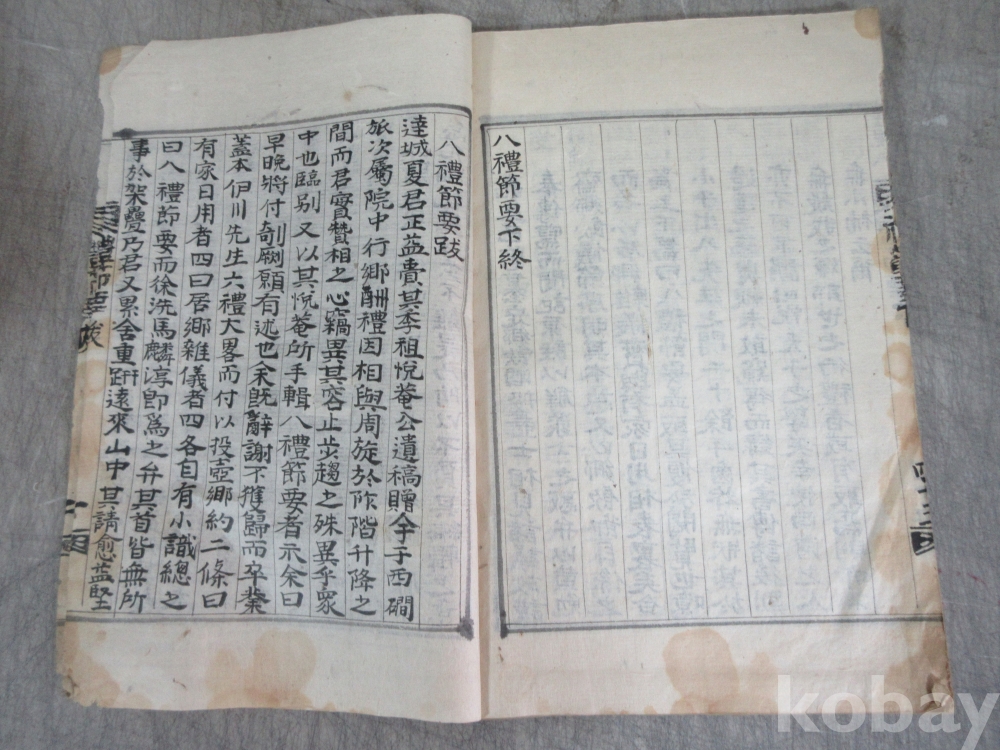 八禮節要下終
八禮節要跋
達城夏君正益賫其季祖悅菴公遺稿贈余于西磵
旅次屬院中行鄉酬禮因相與周旋於阼階升降之
間而君實贊相之心竊異其容止步趨之殊異乎衆
中也臨别又以其悅菴所手輯八禮節要者示余曰
早晚將付剞劂願有述也余旣辭謝不獲歸而卒業
盖本伊川先生六禮大畧而付以投壺鄉約二條曰
有家日用者四曰居鄉雜儀者四各自有小識總之
曰八禮節要而徐洗馬麟淳卽爲之弁其首皆無所
事於架疊乃君又累舍重趼遠來山中其請愈益堅
kobay